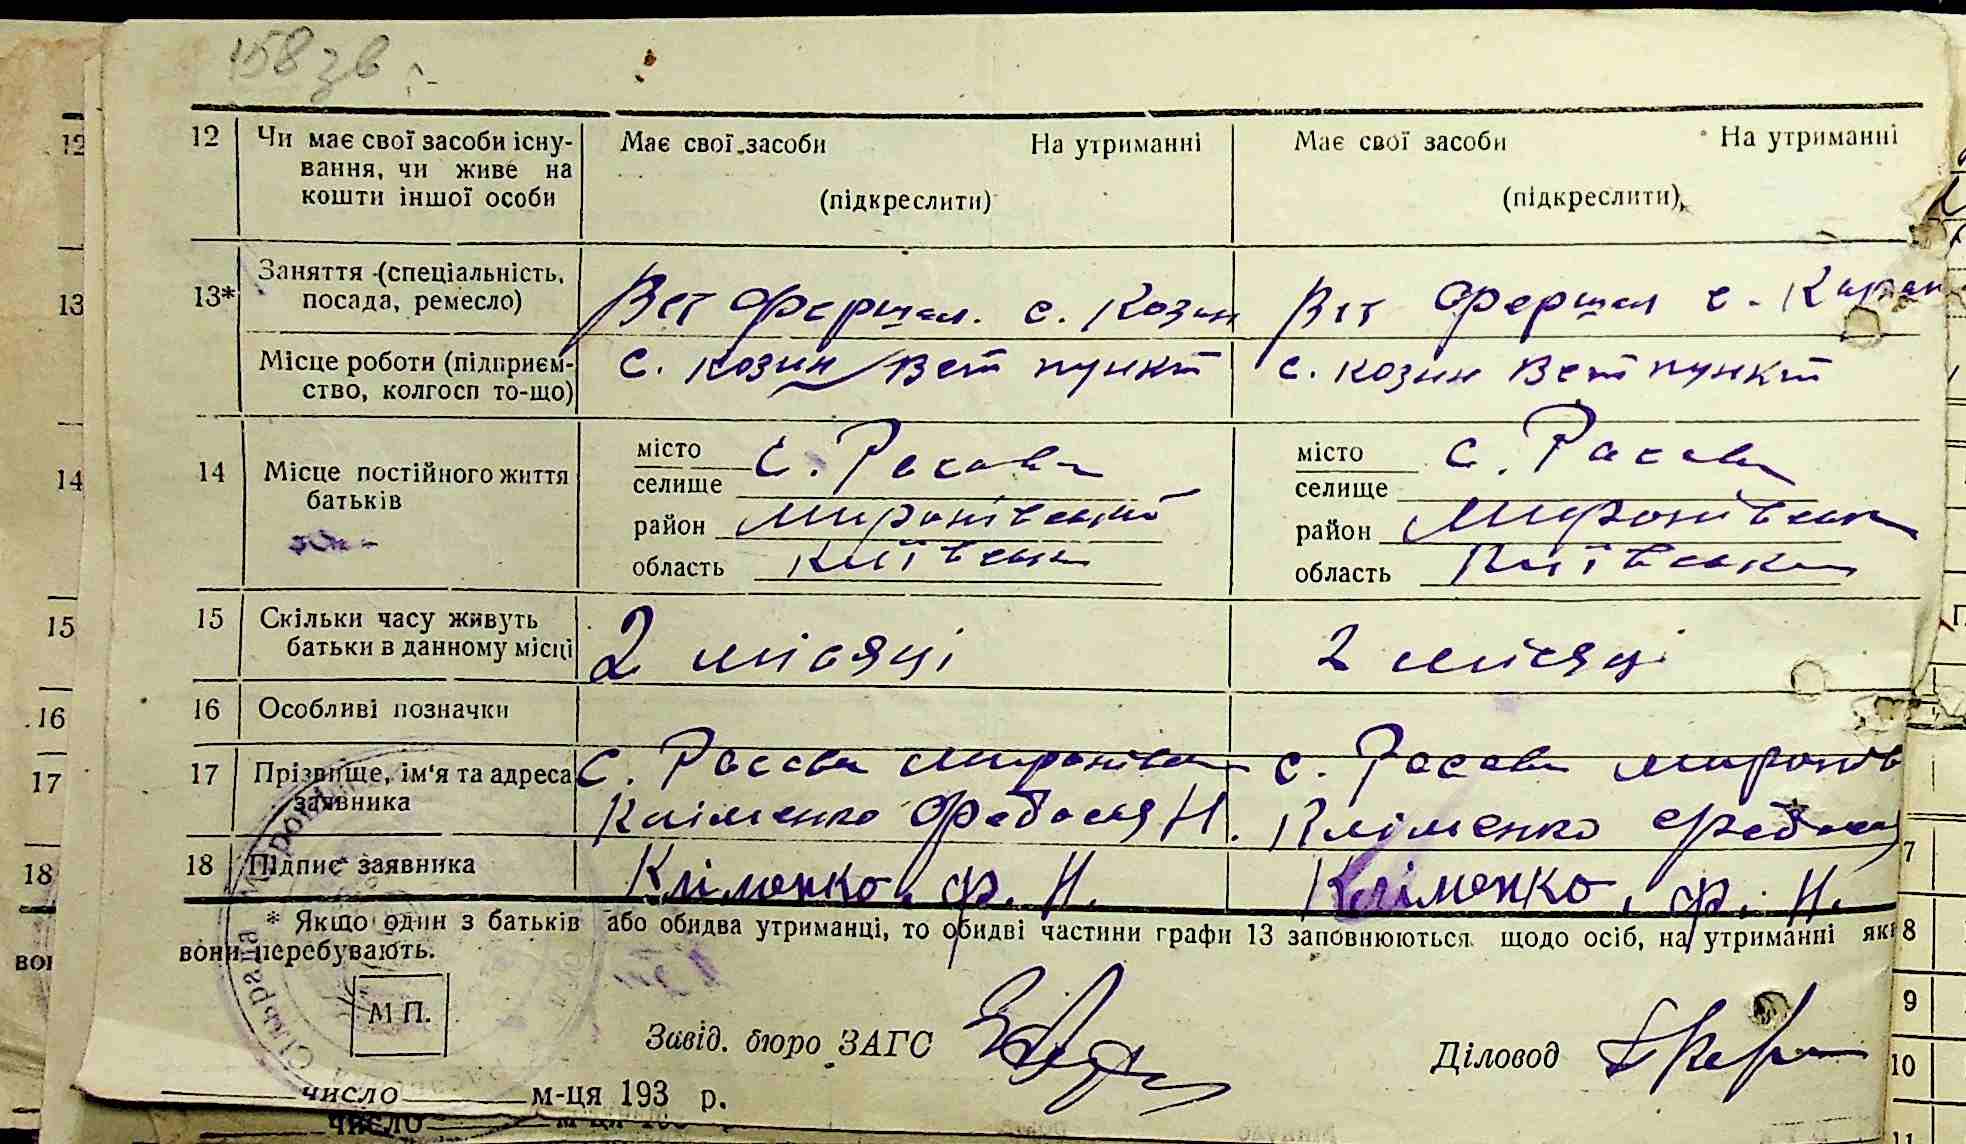 158 зв
12 Чи має свої засоби існу- Має свої засоби На утриманні Має свої засоби На утриманні
вання, чи живе на
кошти іншої особи (підкреслити) (підкреслити)
13* Заняття (спеціальність, посада, ремесло) Вет Фершал. с. Козин Вет Фершал с.
Місце роботи (підприєм- с. Козин Вет пункт с. козин Вет пункт
ство, колгосп то-що)
14 Місце постійного життя батьків
місто с. Расава місто с. Расава
селище селище
район Миронівський район
область Київська область Київська
15 Скільки часу живуть 2 місяці 2 місяці
батьки в данному місці
16 Особливі позначки
17 Прізвище, ім'я та адреса с. Расава с. Расава
заявника Кліменко Н. Кліменко
18 Підпис заявника Кліменко, Ф. Н. Кліменко, Ф. Н.
* Якщо один з батьків або обидва утриманці, то обидві частини графи 13 заповнюються щодо осіб, на утриманні які
вони перебувають.
М П.
Завід. бюро ЗАГС Діловод
число м-ця 193 р.
число
Сільрада
12
13
14
15
16
17
18
7
8
9
10
11